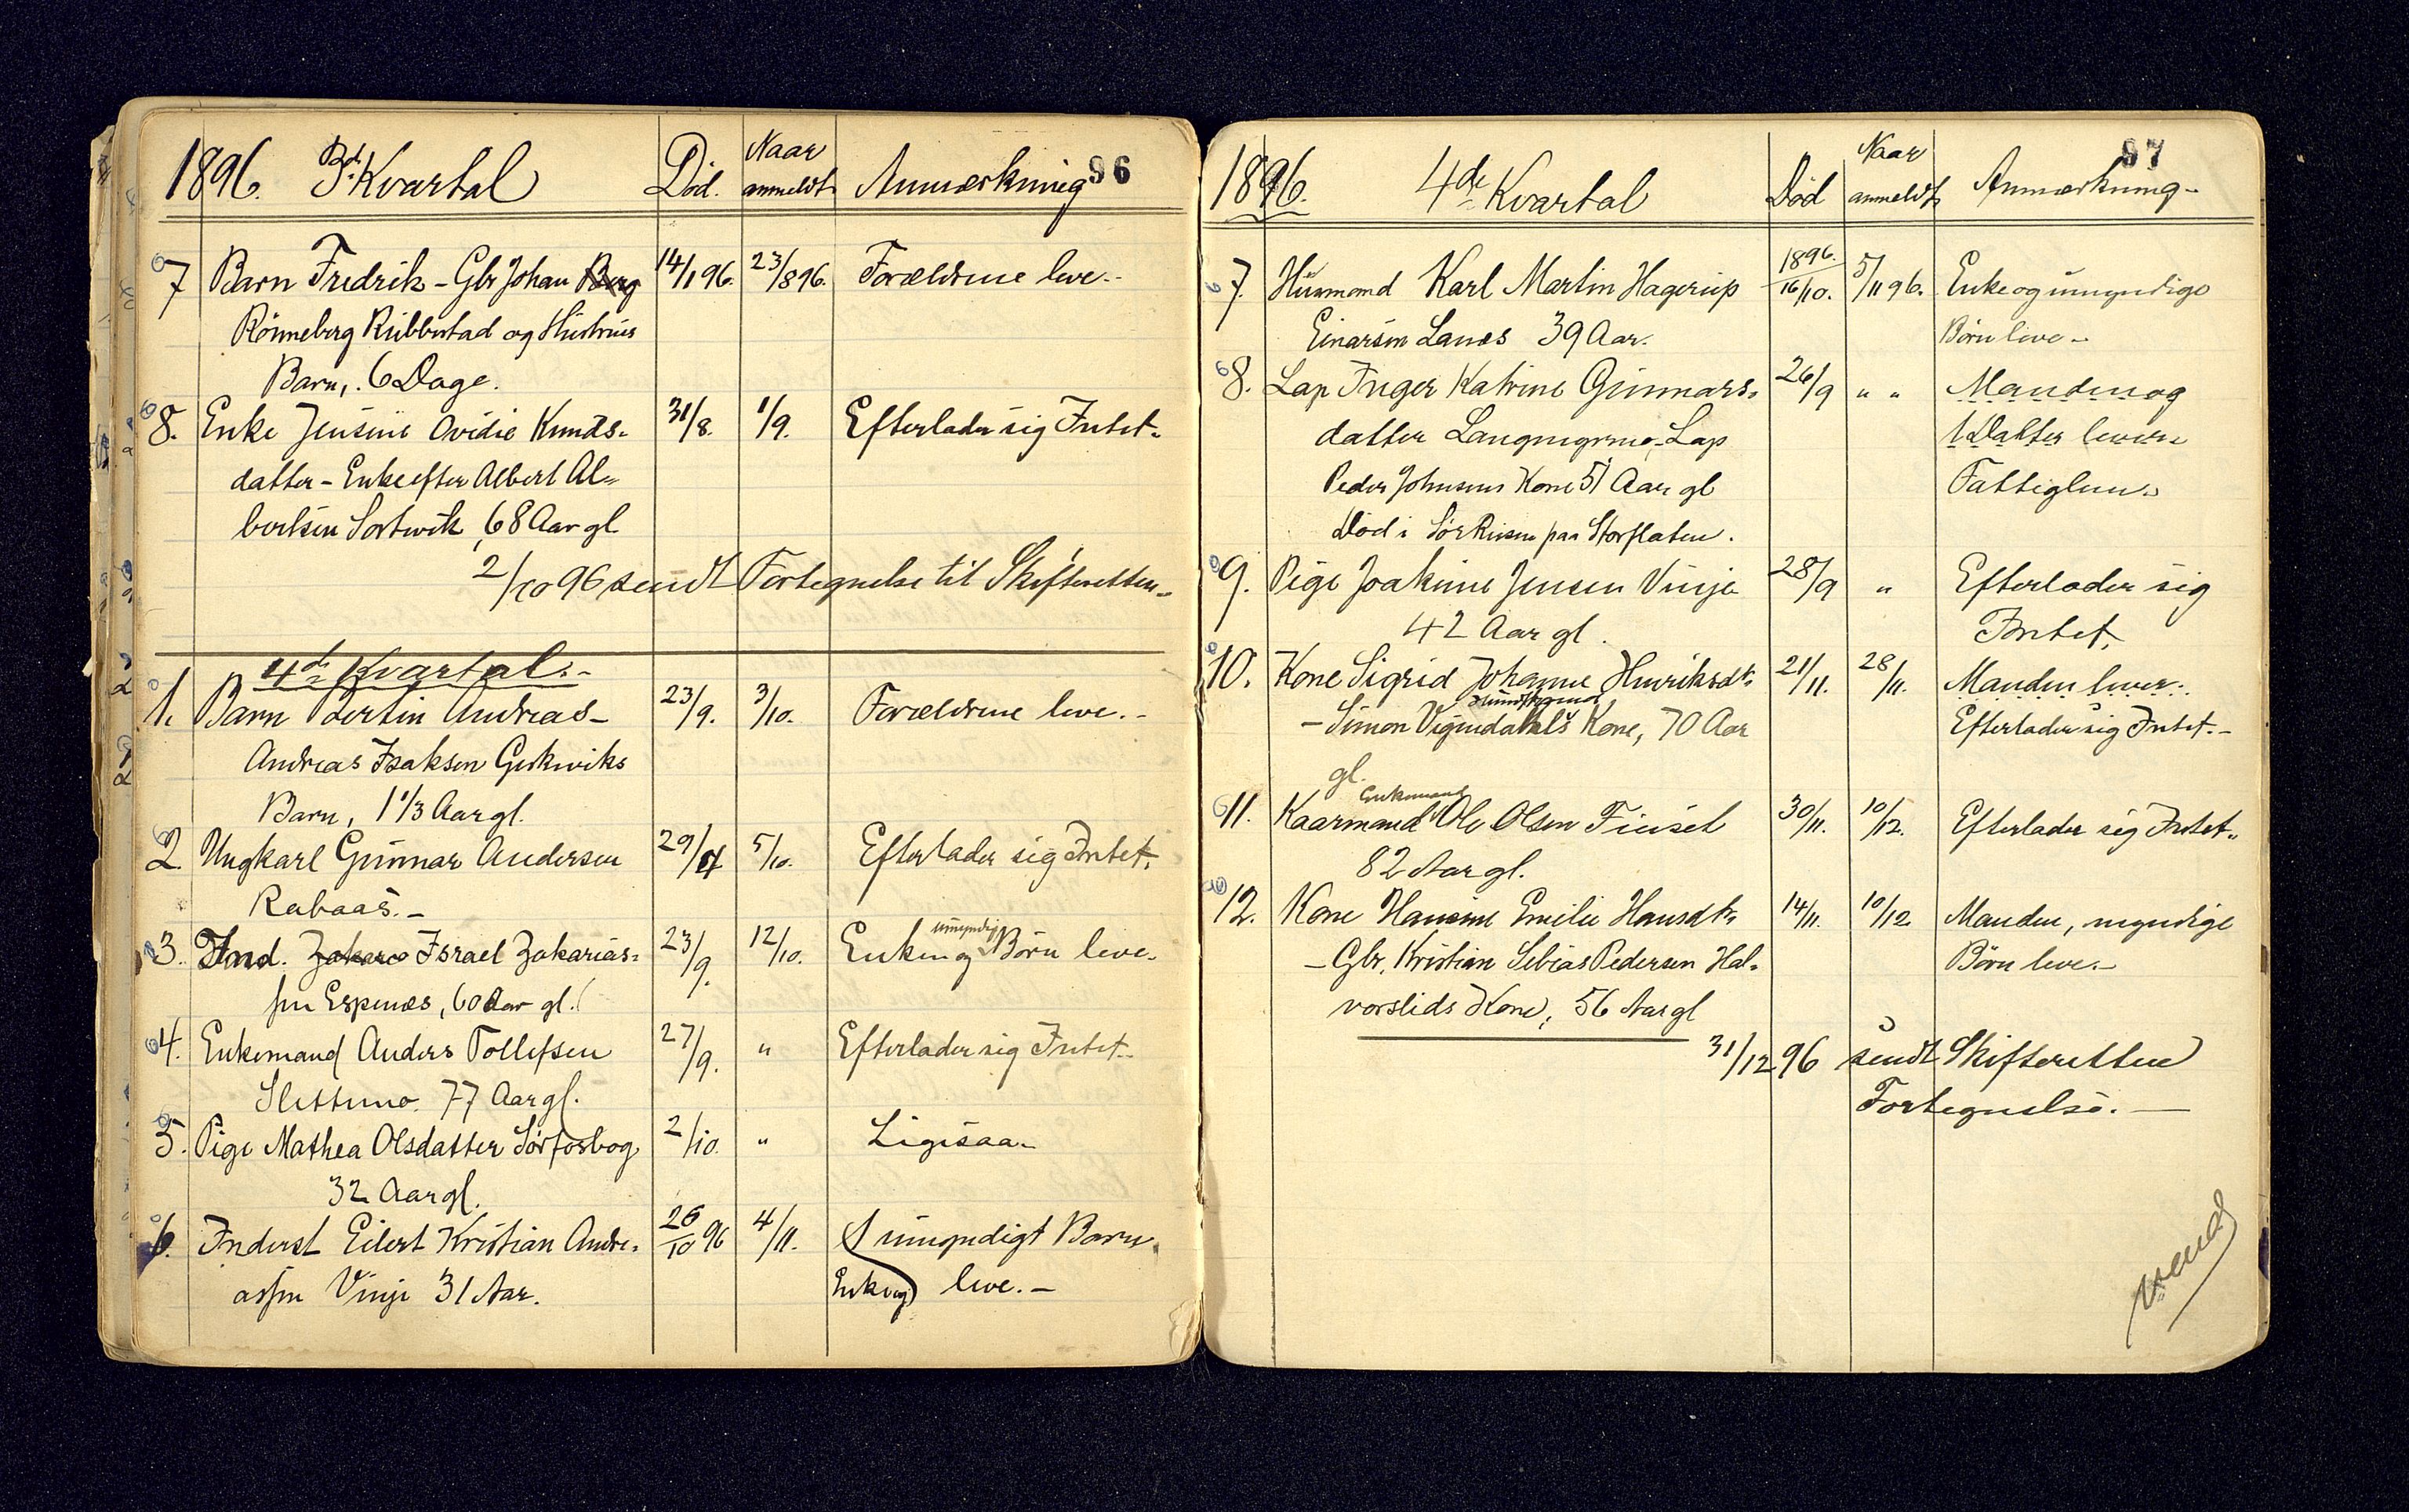 1896. 3d. Kvartal Død. Naar anmeldt Anmærkning 96
7 Barn Fredrik - Gbr Johan Berg 14/1 96. 23/8 96. Forældrene leve.-
Rönneberg Ribbestad og Hustrues
Barn, 6 Dage.
8. Enke Jensine Ovidie Knuds- 31/8. 1/9. Efterlader sig Intet.
datter - Enke efter Albert Al-
bertsen Sortvik, 68 Aar gl.
2/10 96 sendt Fortegnelse til Skifteretten.
4de Kvartal.-
1. Barn Bertin Andreas- 23/9. 3/10. Forældrene leve.-
Andreas Isaksen Giskviks
Barn, 1 1/3 Aar gl.
2. Ungkarl Gunnar Andersen 29/ 5/10. Efterlader sig Intet.
Rabaas.-
3. Ind. Zakar Israel Zakarias- 23/9. 12/10. Enken og umyndige Børn leve.
sen Espenes, 60 Aar gl.
4. Enkemand Anders Tollefsen 27/9. " Efterlader sig Intet.
Slettmo. 77 Aar gl.
5. Pige Mathea Olsdatter Sørforsbog 2/10. " Ligesaa.
32 Aar gl.
6. Inderst Eilert Kristian Andre- 26/10 96 4/11. 1 umyndigt Barn
assen Vinje 31 Aar. Enke og leve.-
1896. 4de Kvartal Død Naar anmeldt Anmærkning- 97
7. Husmand Karl Martin Hagerup 1896. 16/10. 5/11 96. Enke og umyndige
Einarsen Lanes 39 Aar. Børn leve-
8. Lap Inger Katrine Gunnars- 26/9 " " Manden og
datter - Lap 1 Datter lever
Peder Johnsens Kone 51 Aar gl Fattiglem
Død i Sørreisen paa Storflaten.
9. Pige Joakime Jensen Vinje 28/9 " Efterlader sig
42 Aar gl. Intet.
10. Kone Sigrid Johanne Henriksdt. 21/11. 28/11. Manden lever.
- Simon Vigendahls Kone, 70 Aar Efterlader sig Intet.-
gl.
11. Kaarmand Enkemand Ole Olsen Finset 30/11. 10/12. Efterlader sig Intet.
82 Aar gl.
12. Kone Hansine Emilie Hansdt. 14/11. 10/12 Manden, myndige
- Gbr. Kristian Sebias Pedersen Hal- Børn leve.-
vorslids Kone, 56 Aar gl
31/12 96 sendt Skifteretten
Fortegnelse.-
Vend